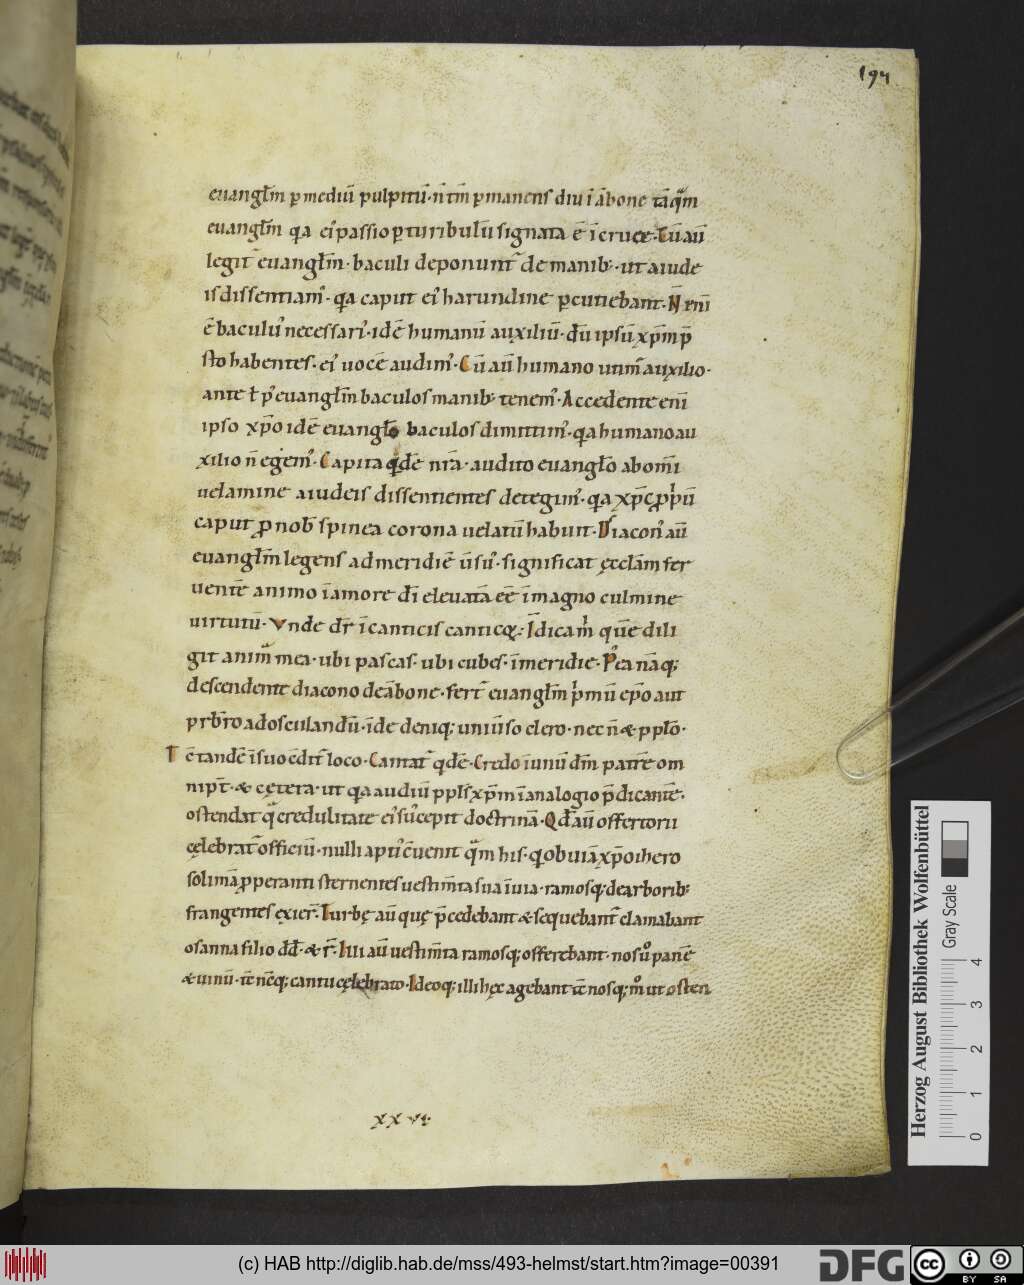 194
euangłm p mediū pulpitū· n̄ tm̄ pmanens diu ī ābone tāqͣm
euangłm qa ei᾽ passio p turibulū signata ē ī cruce· Cū aū
legit᷑ euangłm· baculi deponunt᷑ de manib;· ut a iude
is dissentiam᾽· qa caput ei᾽ harundine pcutiebant· N̄ eni
ē baculu᾽ necessari᾽· idē humanū auxiliū· dū ipsū xp̄m p̄
sto habentes· ei᾽ uocē audim᾽· Cū aū humano utim᷑ auxilio·
ante ł p᾽ euangłm baculos manib; tenem᾽· Accedente enī
ipso xp̄o idē euangło baculos dimittim᾽· qa humano au
xilio n̄ egem᾽· Capita qͥdē nr̄a· audito euangło ab omī
uelamine a iudeis dissentientes detegim᾽· qa xp̄c ꝓpriū
caput ꝓ nob̄ spinea corona uelatū habuit· Diacon᾽ aū
euangłm legens ad meridiē ūsu᾽· significat ęcclām fer
uente animo ī amore dī eleuatā eē ī magno culmine
uirtutū· Vnde dr̄ ī canticis canticoꝝ: Indica m̍ quē dili
git animͣ mea· ubi pascas· ubi cubes· ī meridie· Pᷣea nāq;
descendente diacono de ābone· fert᷑ euangłm p̍mū ep̄o aut
prb̄ro ad osculandū· īde deniq; uniūso clero· nec n̄ & ppło·
Tē tandē ī suo cd̄it᷑ loco· Cantat᷑ qͥdē· Credo ī unū dm̄ patrē om
nipt̄· & cętera· ut qa audiū ppls xp̄m ī analogio p̄dicantē·
ostendat qͣ credulitate ei᾽ sūcepit doctrinā· Qd̄ aū offertorii
cęlebrat᷑ officiū· nulli apti᾽ cuenit qͣm his· q obuiā xp̄o ihero
solimā ꝓperanti sternentes uestim̄ta sua ī uia· ramosq; de arborib;
frangentes exier̄· Turbę aū quę p̄cedebant & sequebant᷑ clamabant
osanna filio dd̄· & r̄· Illi aū uestim̄ta ramosq; offerebant· nos ū᷒ panē
& uinū· tē nēq; cantu cęlebrato· Ideoq; illi hęc agebant tē nosq; m᷒ ut osten
xxvi·
Herzog August Bibliothek Wolfenbüttel
Gray Scale
0 1 2 3 4
(c) HAB http://diglib.hab.de/mss/493-helmst/start.htm?image=00391
DFG
cc
BY SA